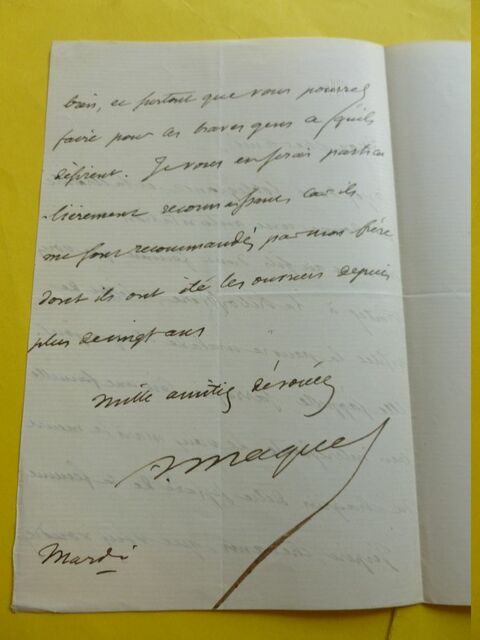 bien, et surtout que vous pourrez
faire pour ces braves gens ce qu'ils
désirent. Je vous en serais particu
-lièrement reconnaissant car ils
me sont recommandés par mon frère
dont ils ont été les ouvriers depuis
plus de vingt ans
mille amitiés dévouées
A. Maquet
Mardi